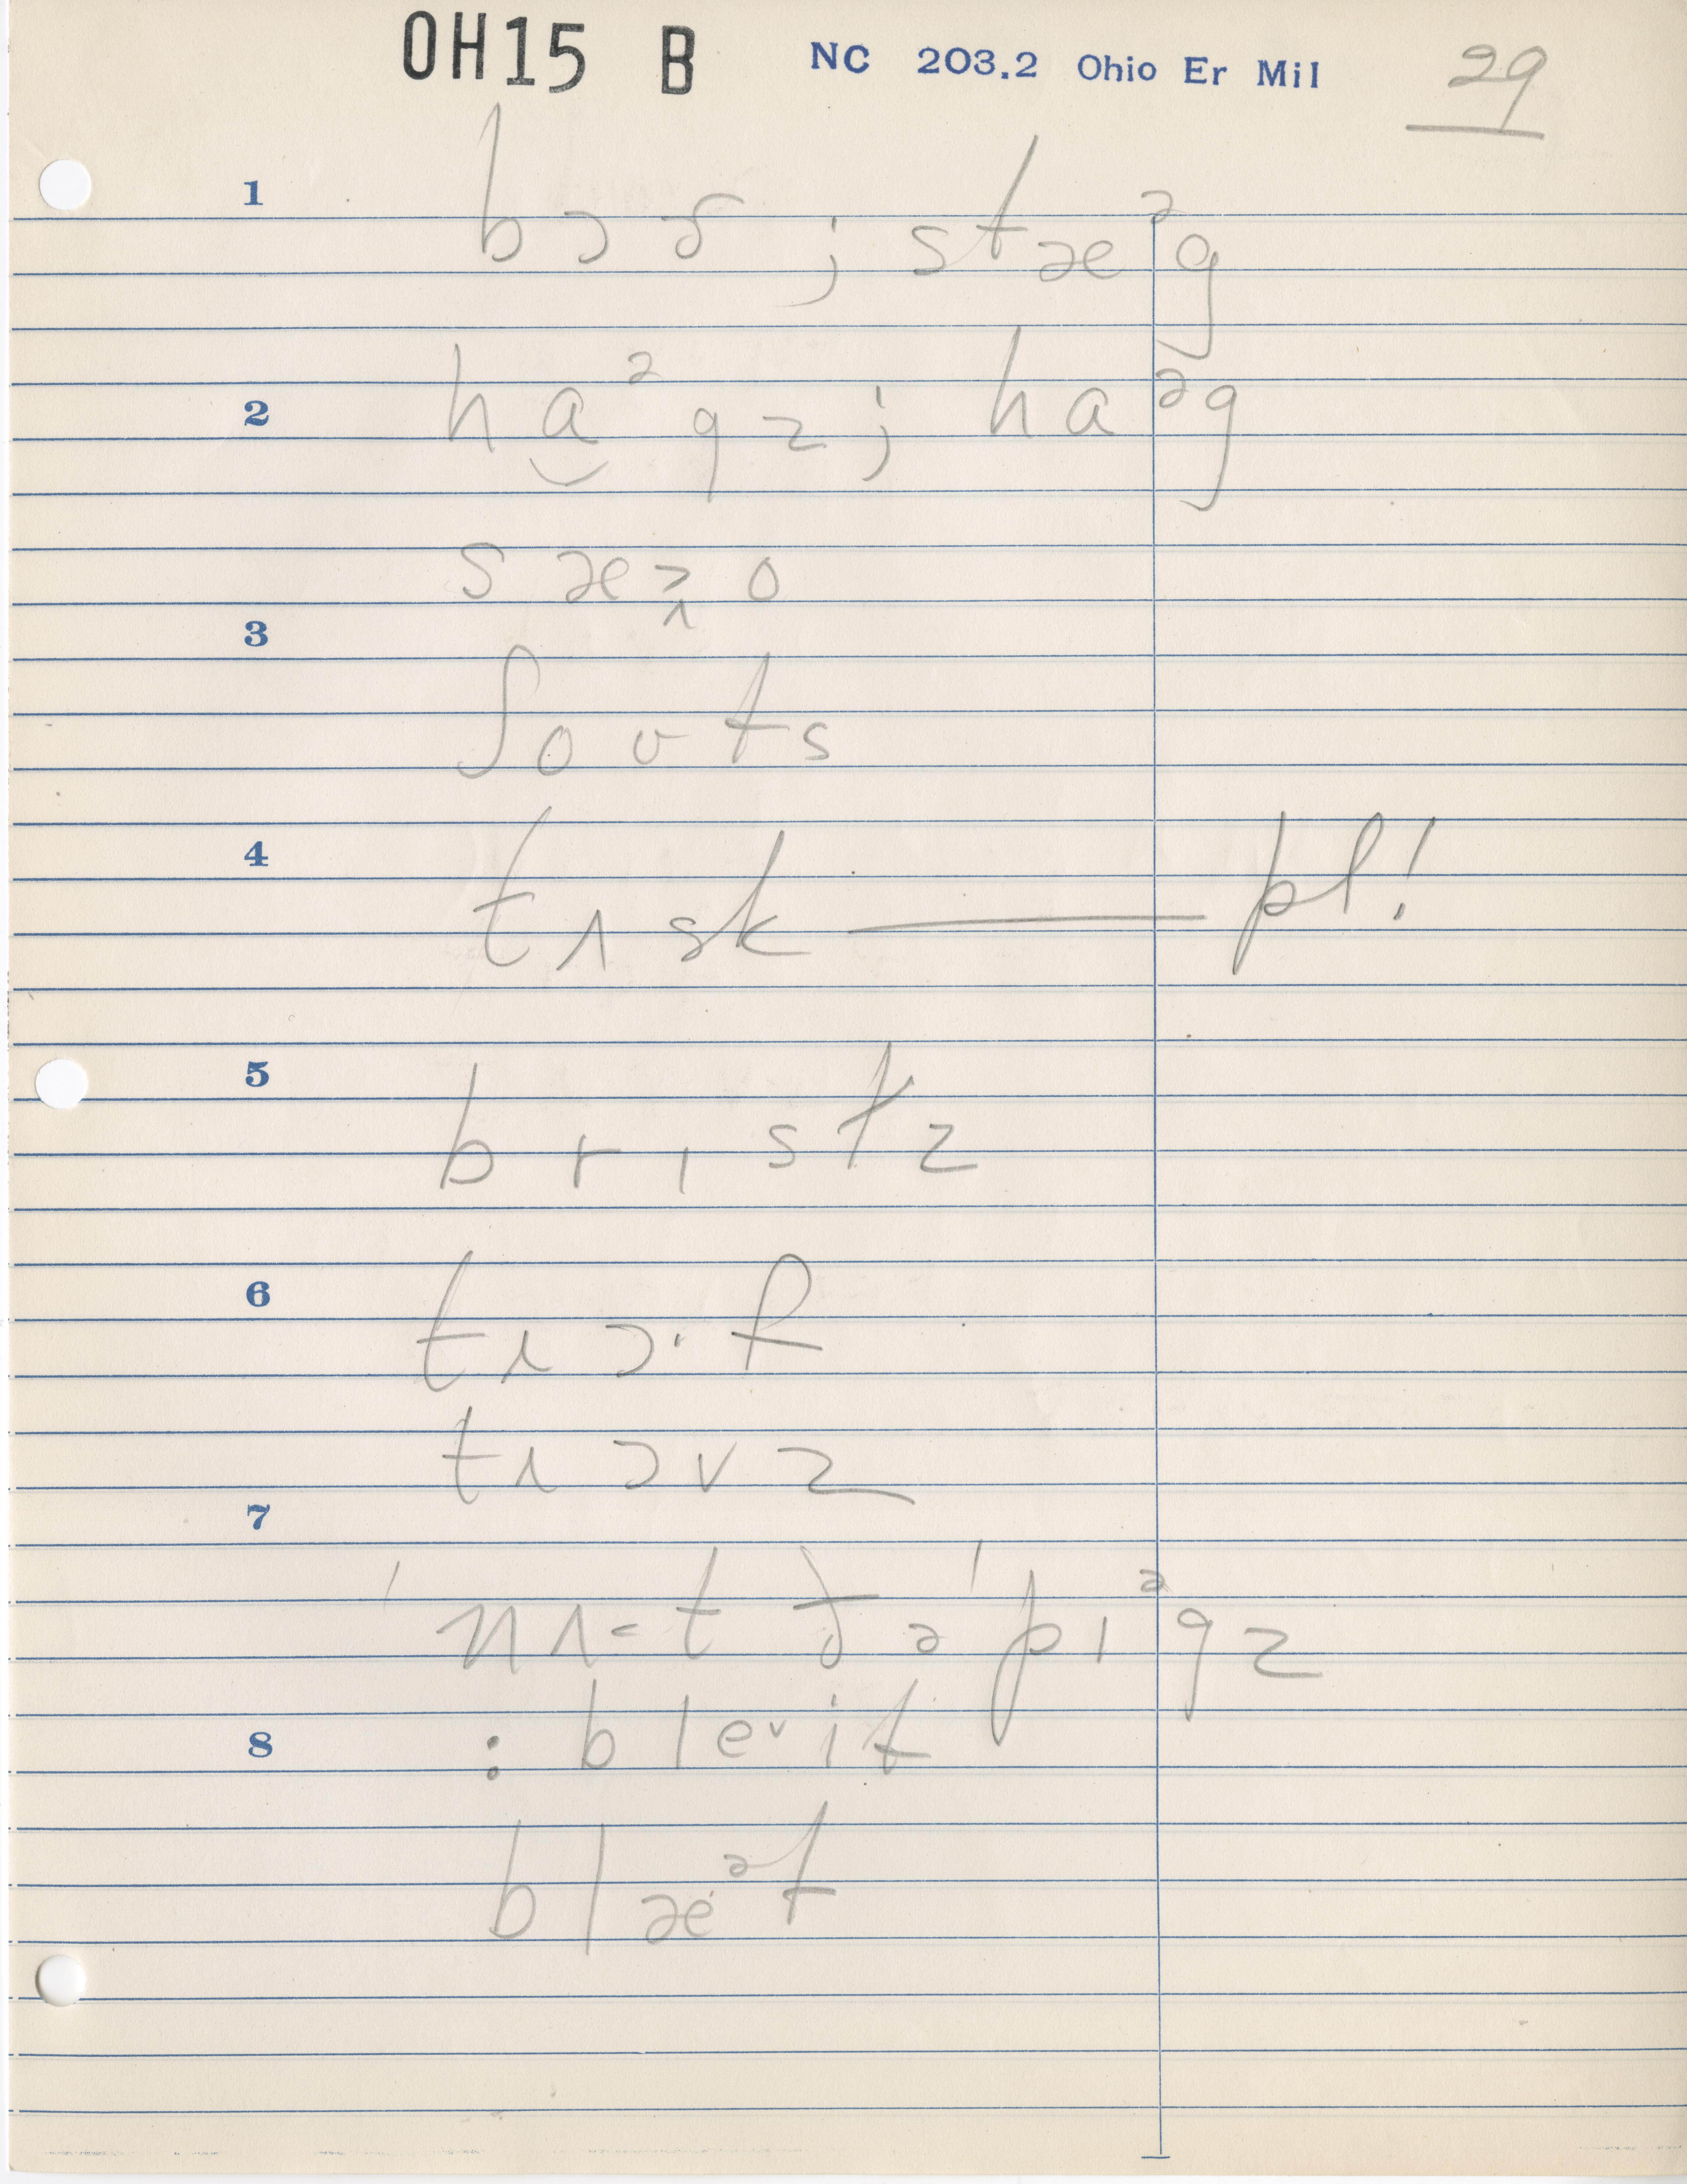 OH15 B NC 203.2 Ohio Er Mil 29
1 bɔɚ ; stæᵊg
2 ha̮ᵊgz ; haᵊg
3 ʃouts
4 tʌsk — pl!
5 brɪstz
6 trɔ·f
trɔvz
7
ˈnʌ˂t ðə ˈpɪᵊgz
8 : bleᵛit
blæᵊt